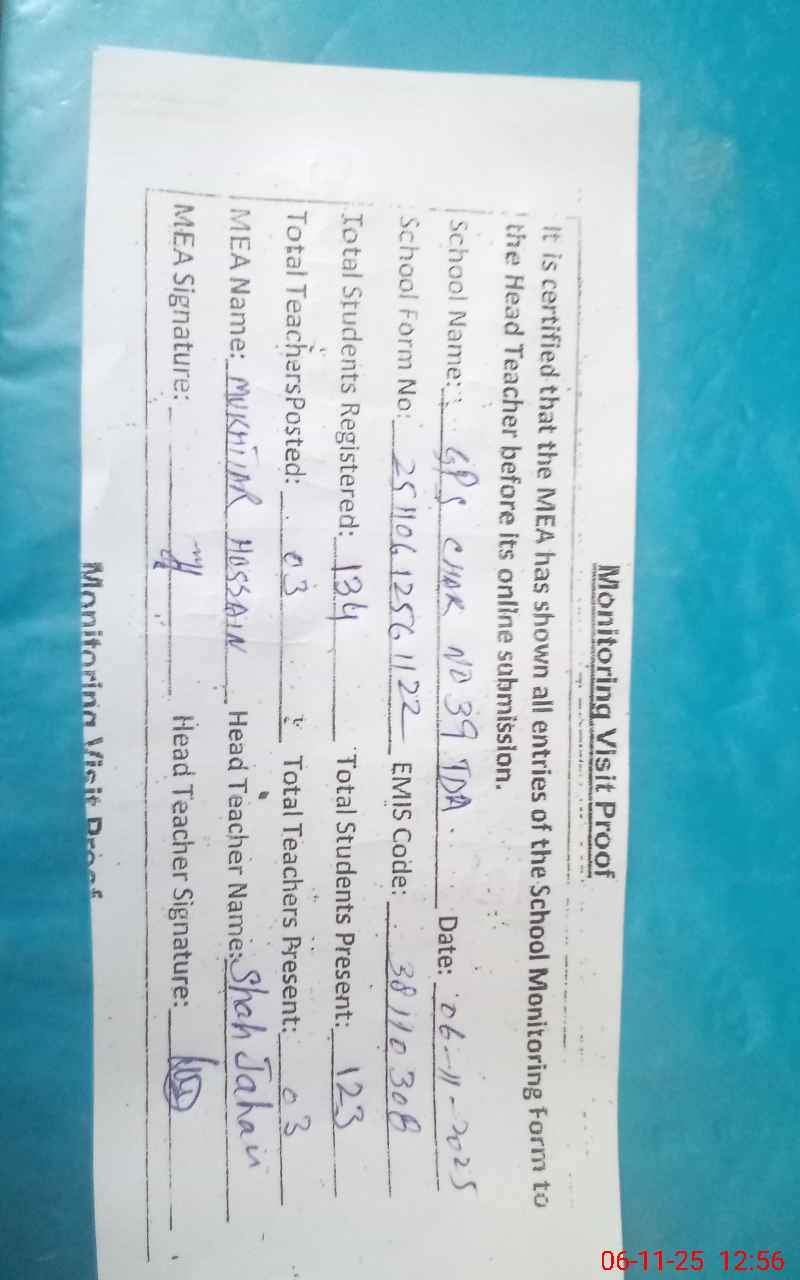 Monitoring Visit Proof
It is certified that the MEA has shown all entries of the School Monitoring Form to
the Head Teacher before its online submission.
School Name: GPS CHAK NO 39 TDA. Date: 06-11-2025
School Form No: 25110612561122 EMIS Code: 3811030B
Total Students Registered: 134 Total Students Present: 123
Total TeachersPosted: 03 Total Teachers Present: 03
MEA Name: MUKHTIAR HOSSAIN Head Teacher Name: Shah Jahan
MEA Signature: Head Teacher Signature:
Monitoring Visit Proof
06-11-25 12:56